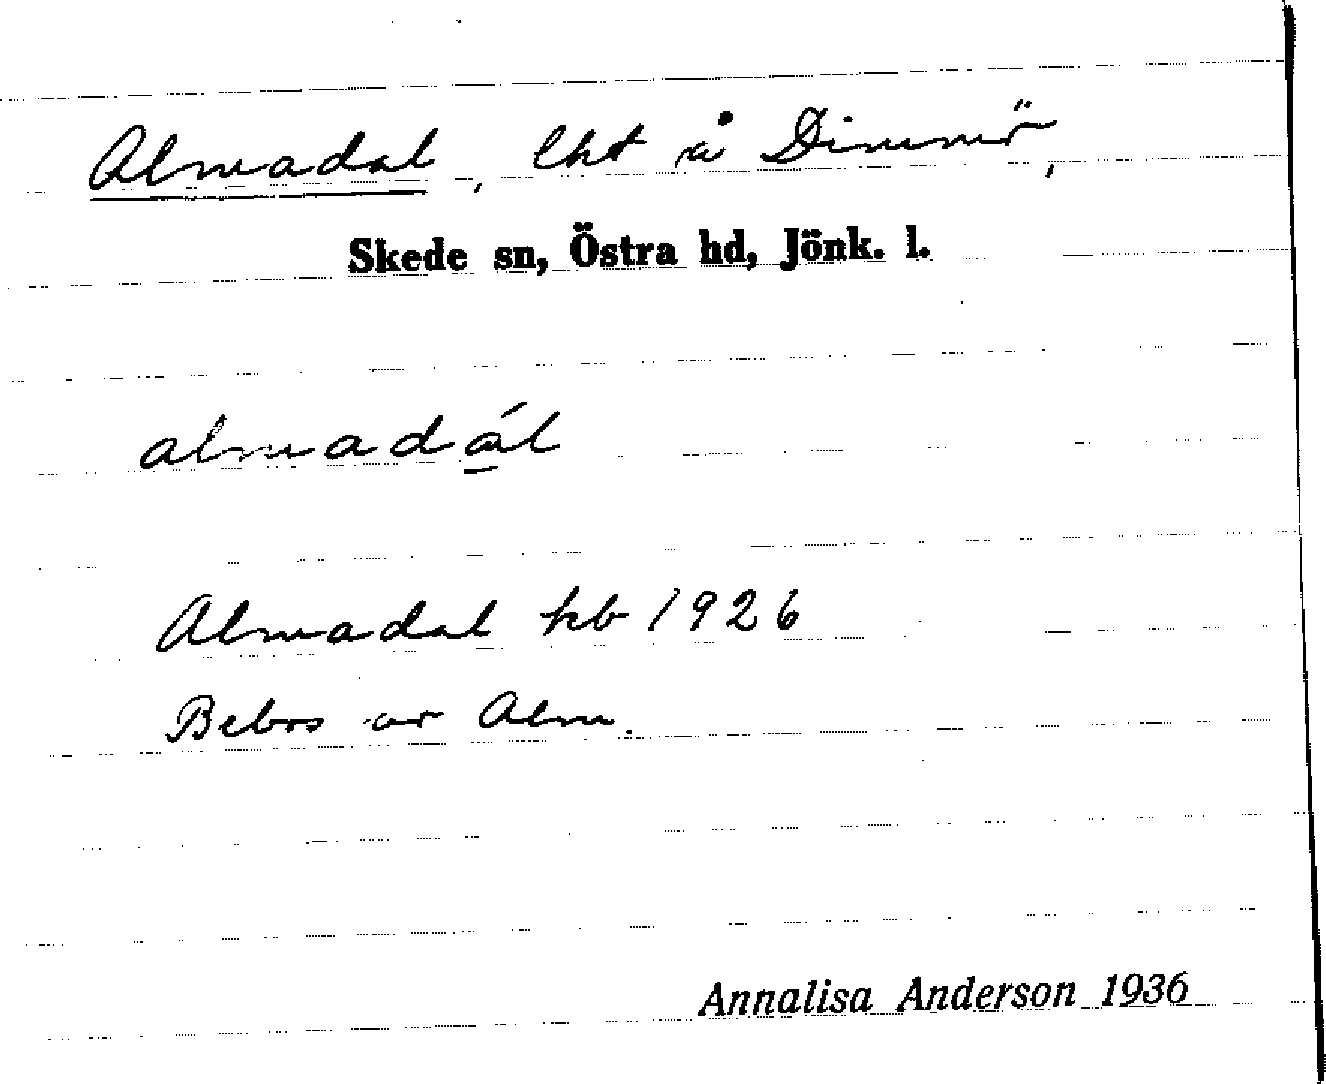 Almadal, lht å Dimmö,
Skede sn, Östra hd, Jönk. l.
almadál
Almadal kb 1926
Bebos av Alm.
Annalisa Anderson 1936